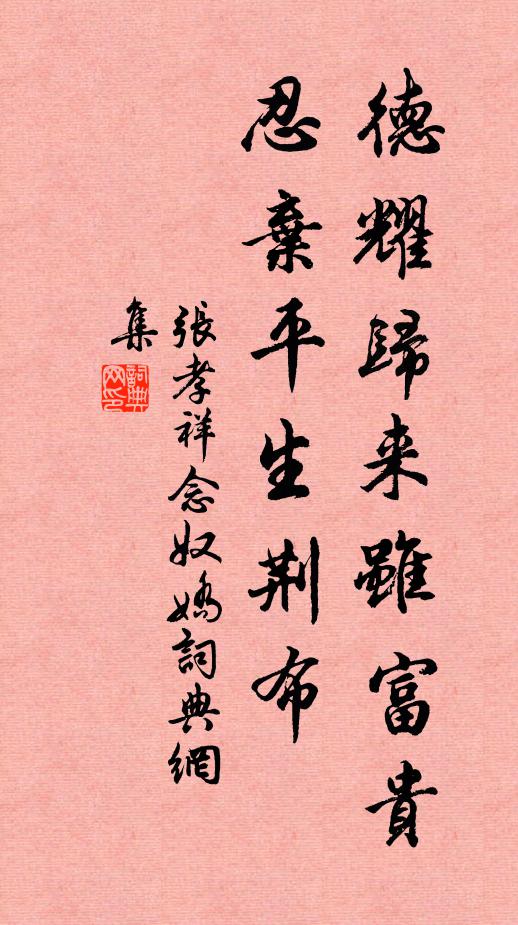 德耀歸来雖富貴
忍棄平生荆布
張孝祥念奴嬌詞典網
集
詞典
网印